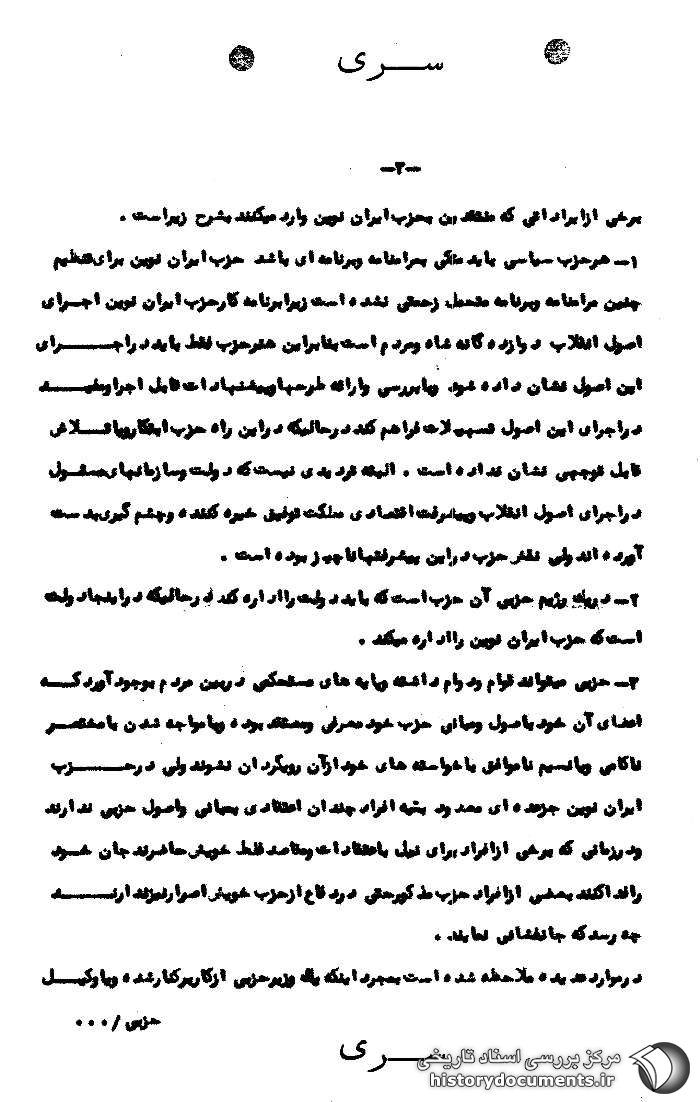 ســـری
-۲-
برخی ازایراداتی که منتقدین بحزب ایران نوین وارد میکنند بشرح زیراست .
۱- هرحزب سیاسی باید متکی بمرامنامه وبرنامه ای باشد حزب ایران نوین برای تنظیم
چنین مرامنامه وبرنامه متحمل زحمتی نشده است زیرابرنامه کارحزب ایران نوین اجـرای
اصول انقلاب دوازده گانه شاه ومردم است بنابراین هنرحزب فقط باید دراجــــرای
این اصول نشان داده شود وبابررسی وارائه طرحهاوپیشنهادات قابل اجراومفیـــد
دراجرای این اصول تسهیلات فراهم کند درحالیکه دراین راه حزب ابتکاروتـــلاش
قابل توجهی نشان نداده است . البته تردیدی نیست که دولت وسازمانهای مسئـول
دراجرای اصول انقلاب وپیشرفت اقتصادی مملکت توفیق خیره کننده وچشم گیری بدست
آورده اند ولی نقش حزب دراین پیشرفتهاناچیز بوده است .
۲- دریک رژیم حزبی آن حزب است که باید دولت رااداره کند درحالیکه دراینجادولت
است که حزب ایران نوین رااداره میکند .
۳- حزبی میتواند قوام ودوام داشته وپایه های مستحکمی دربین مردم بوجودآورد کـــه
اعضای آن خود باصول ومبانی حزب خود معرفی ومعتقد بوده وبامواجه شدن بامختصـر
ناکامی وباتسیم ناموافق باخواسته های خود ازآن رویگردان نشوند ولی درحــــزب
ایران نوین جزعده ای معدود بقیه افراد چندان اعتقادی بمبانی واصول حزبی ندارند
ودرزمانی که برخی ازافراد برای نیل باعتقادات ومقاصد غلط خویش حاضرند جان خـود
رافداکنند بعضی ازافراد حزب مذکورحتی در دفاع ازحزب خویش اصرارنیزندارنـــد
چه رسد که جانفشانی نمایند .
درموارد عدیده ملاحظه شده است بمجرد اینکه یک وزیرحزبی ازکاربرکنارشده ویاوکیــل
حزبی /۰۰۰
ســـری
مرکز بررسی اسناد تاریخی
historydocuments.ir